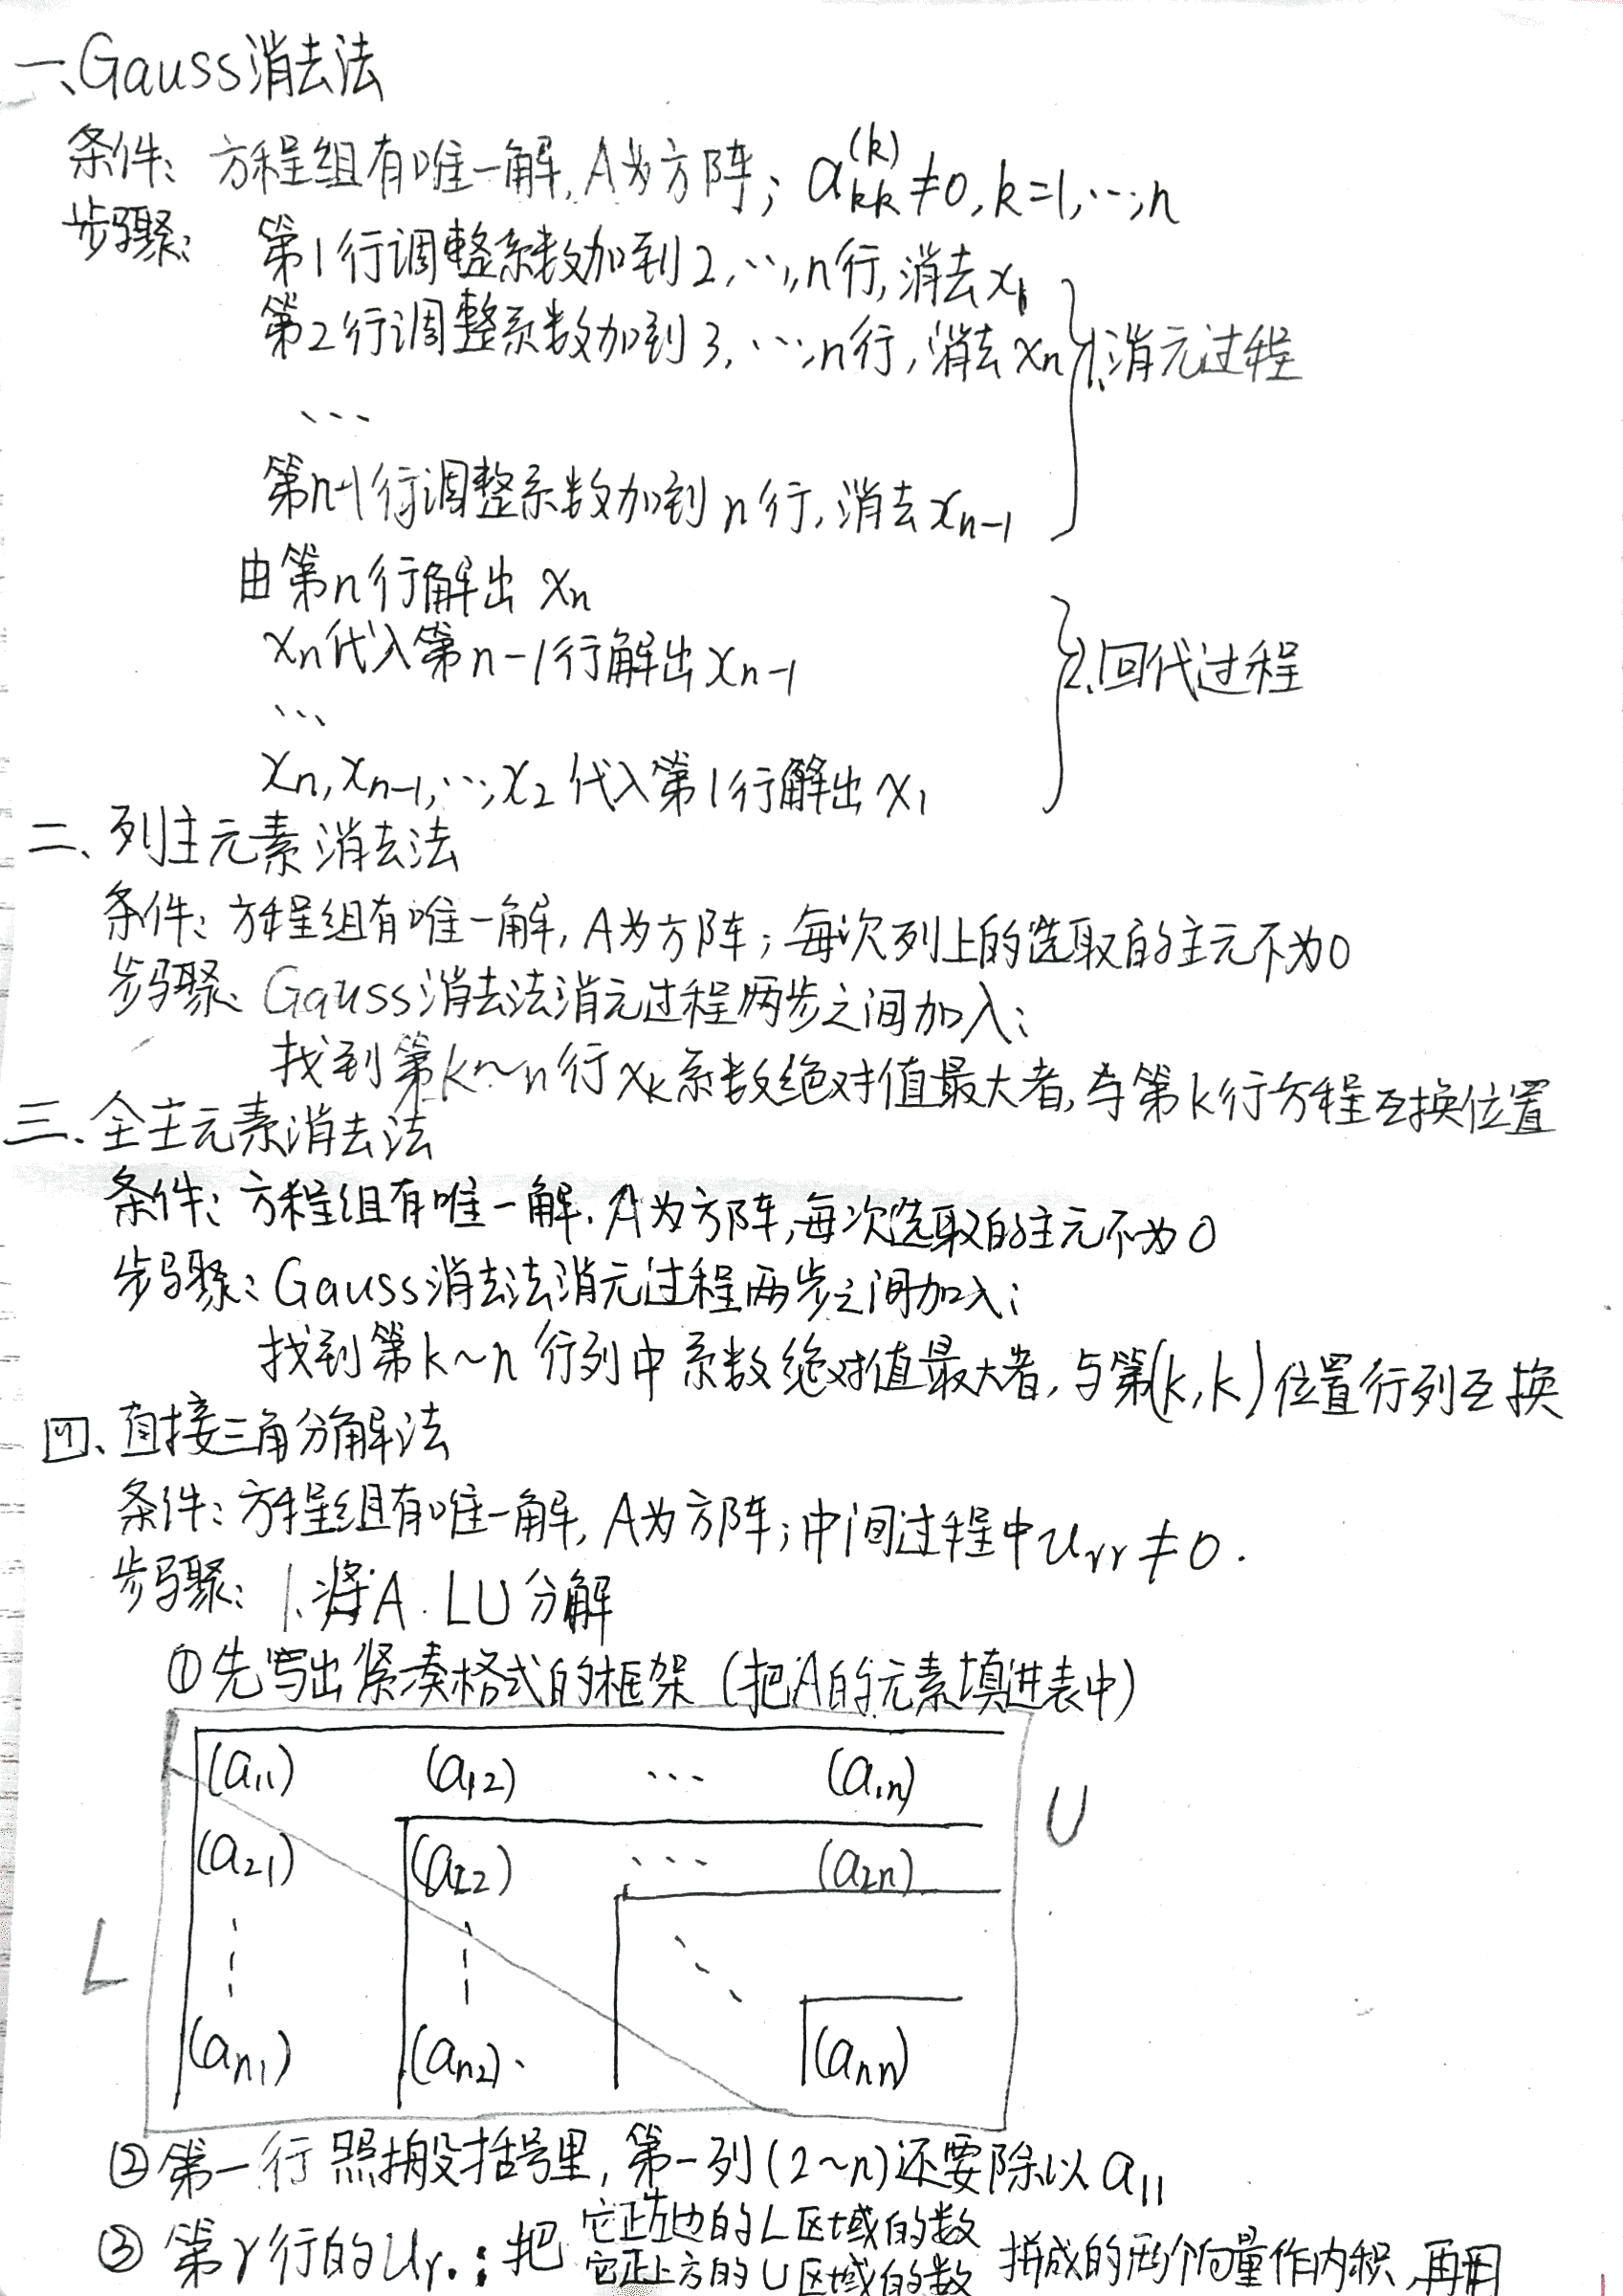 一、Gauss消去法
条件：方程组有唯一解，A为方阵；a_{kk}^{(k)}≠0，k=1,…,n
步骤：第1行调整系数加到2,…,n行，消去x₁
第2行调整系数加到3,…,n行，消去xₙ
1.消元过程
…
第n-1行调整系数加到n行，消去xₙ₋₁
由第n行解出xₙ
xₙ代入第n-1行解出xₙ₋₁
2.回代过程
…
xₙ,xₙ₋₁,…,x₂代入第1行解出x₁
二、列主元素消去法
条件：方程组有唯一解，A为方阵；每次列上的选取的主元不为0
步骤：Gauss消去法消元过程两步之间加入：
找到第k~n行xₖ系数绝对值最大者，与第k行方程互换位置
三、全主元素消去法
条件：方程组有唯一解，A为方阵，每次选取的主元不为0
步骤：Gauss消去法消元过程两步之间加入：
找到第k~n行列中系数绝对值最大者，与第(k,k)位置行列互换
四、直接三角分解法
条件：方程组有唯一解，A为方阵；中间过程中u_{rr}≠0.
步骤：1.将A LU分解
①先写出紧凑格式的框架（把A的元素填进表中）
(a₁₁) (a₁₂) … (a₁ₙ)
U
(a₂₁) (a₂₂) … (a₂ₙ)
L
⋮ ⋮ ⋱
(aₙ₁) (aₙ₂) (aₙₙ)
②第一行照搬括号里，第一列(2~n)还要除以a₁₁
③第r行的u_{r·}：把 它正左边的L区域的数
它正上方的U区域的数 拼成的两个向量作内积，再用